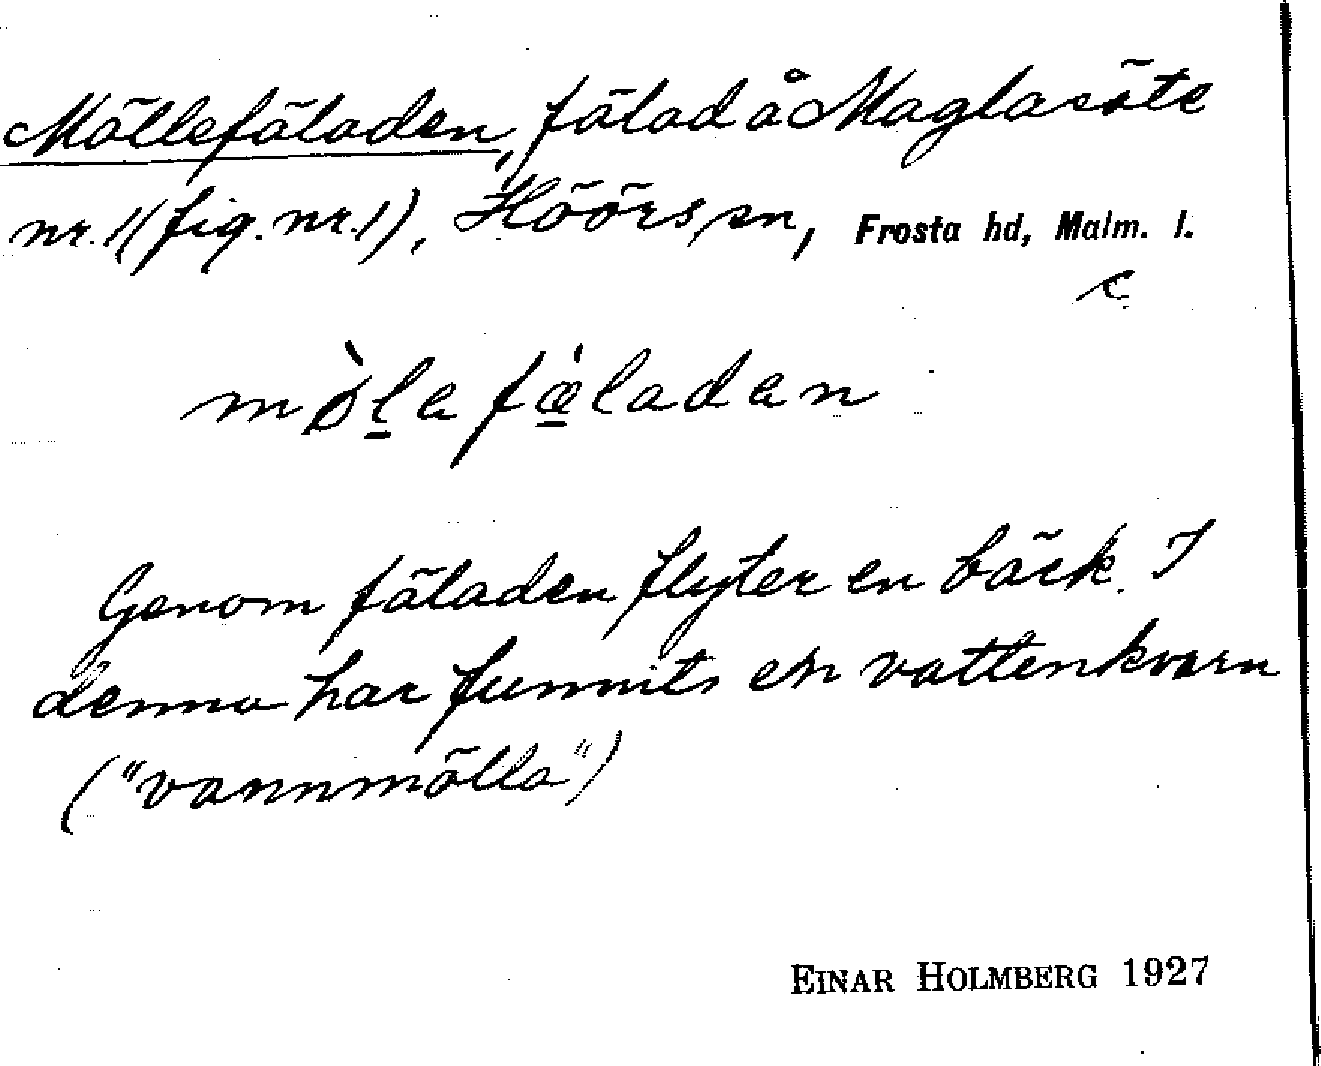 Möllefäladen, fälad å Maglasäte
nr. 1 (fig. nr. 1), Höörs sn, Frosta hd, Malm. l.
c
mø̀l̲a fæ̲̍ladan
Genom fäladen flyter en bäck. I
denna har funnits en vattenkvarn
("vannmölla")
EINAR HOLMBERG 1927